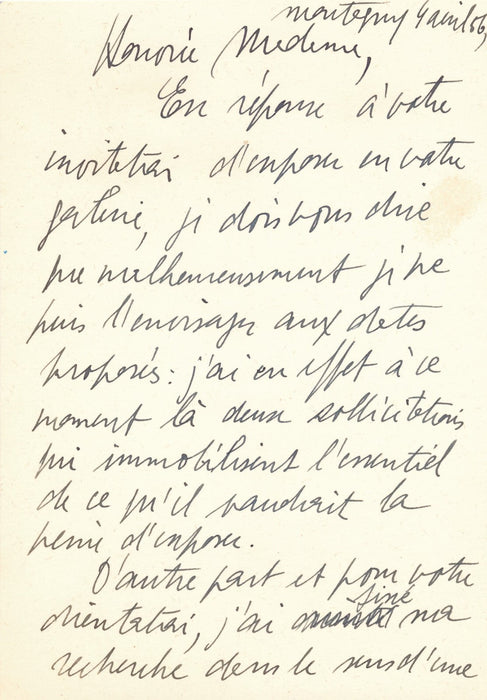 Montegny 4 avril 56,
Honorée Madame,
En réponse à votre
invitation d'exposer en votre
galerie, je dois vous dire
que malheureusement je ne
puis l'envisager aux dates
proposés : j'ai en effet à ce
moment là deux sollicitations
qui immobilisent l'essentiel
de ce qu'il vaudrait la
peine d'exposer.
D'autre part et pour votre
orientation, j'ai fixé ma
recherche dans le sens d'une